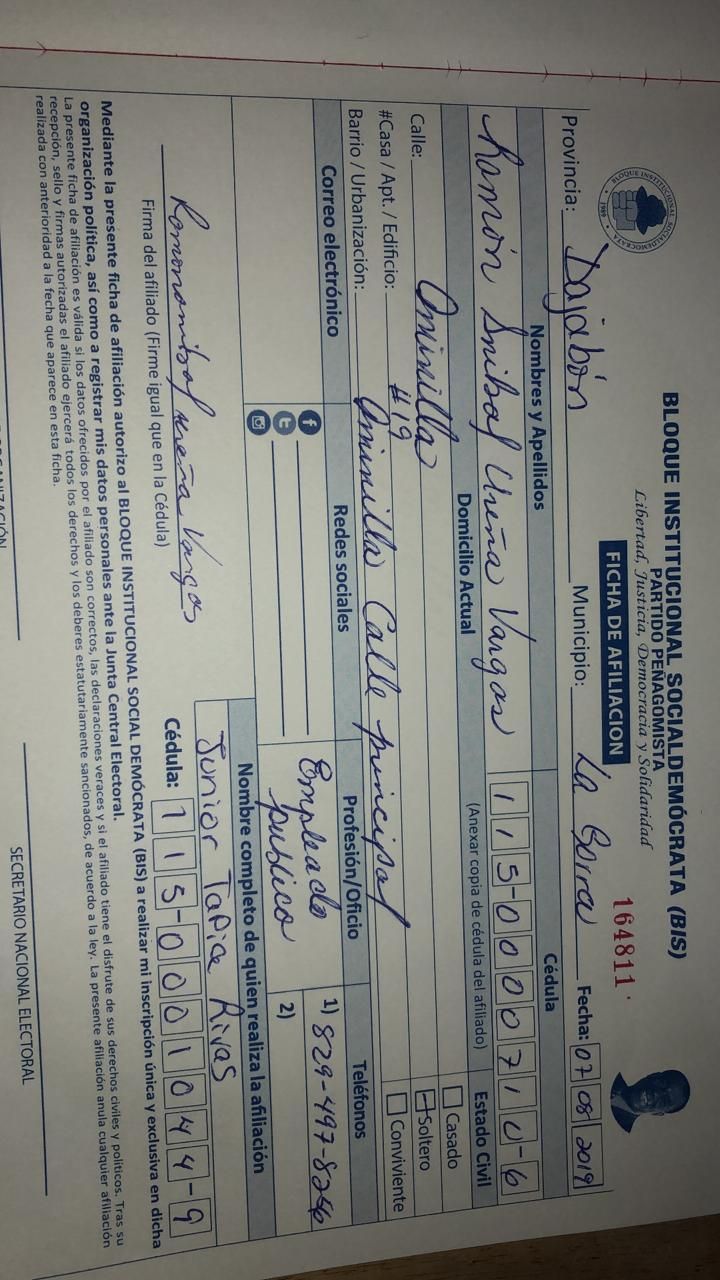 BLOQUE INSTITUCIONAL SOCIALDEMÓCRATA (BIS)
PARTIDO PENAGOMISTA
Libertad, Justicia, Democracia y Solidaridad
FICHA DE AFILIACION
164811
BLOQUE INSTITUCIONAL SOCIALDEMOCRATA
1989
Provincia: Dajabón Municipio: La Fecha: 07 08 2019
Nombres y Apellidos Cédula Estado Civil
Ramón Anibal Ureña Vargas 115-0000710-6
(Anexar copia de cédula del afiliado)
Domicilio Actual
Casado
Soltero
Conviviente
Calle:
#Casa / Apt. / Edificio: #19
Barrio / Urbanización: Calle principal
Correo electrónico Redes sociales Profesión/Oficio Teléfonos
Empleado
publico
1) 829-497-8256
2)
Nombre completo de quien realiza la afiliación
Junior Tapia Rivas
Ramon anibal ureña Vargas
Firma del afiliado (Firme igual que en la Cédula)
Cédula: 115-0001044-9
Mediante la presente ficha de afiliación autorizo al BLOQUE INSTITUCIONAL SOCIAL DEMÓCRATA (BIS) a realizar mi inscripción única y exclusiva en dicha
organización política, así como a registrar mis datos personales ante la Junta Central Electoral.
La presente ficha de afiliación es válida si los datos ofrecidos por el afiliado son correctos, las declaraciones veraces y si el afiliado tiene el disfrute de sus derechos civiles y políticos. Tras su
recepción, sello y firmas autorizadas el afiliado ejercerá todos los derechos y los deberes estatutariamente sancionados, de acuerdo a la ley. La presente afiliación anula cualquier afiliación
realizada con anterioridad a la fecha que aparece en esta ficha.
SECRETARIO NACIONAL ELECTORAL